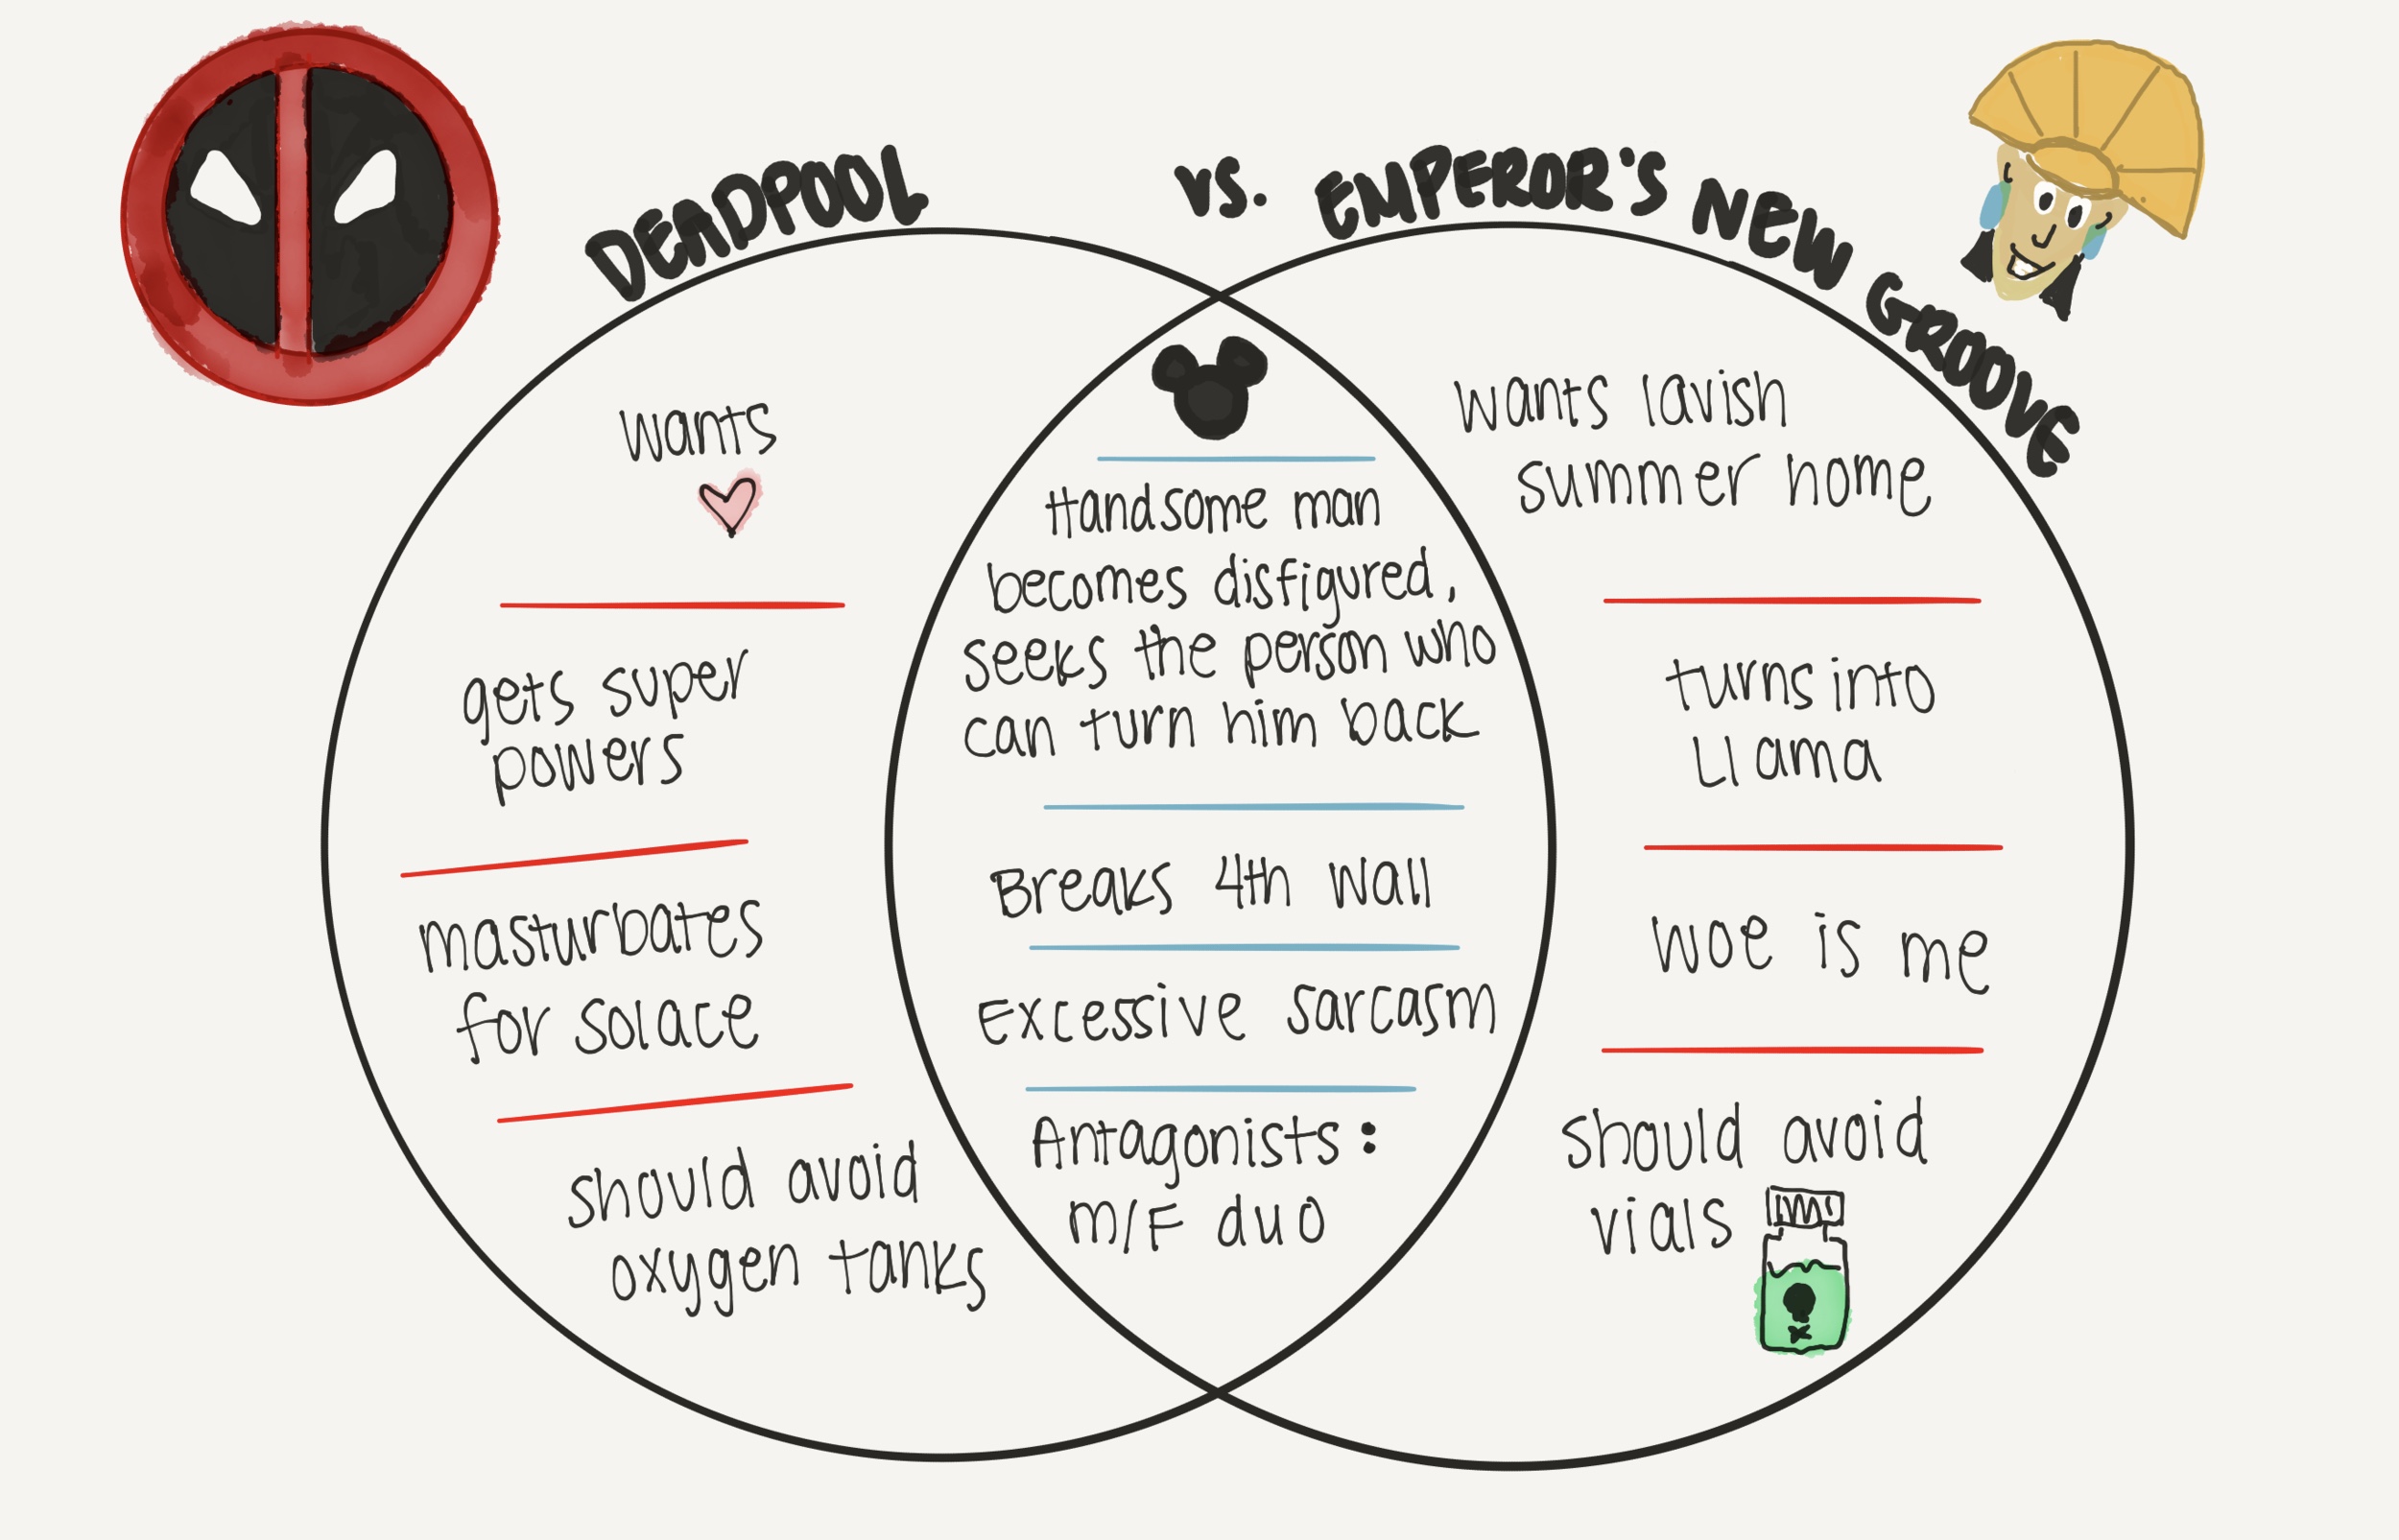 DEADPOOL vs. EMPEROR'S NEW GROOVE
wants
gets super
powers
masturbates
for solace
should avoid
oxygen tanks
Handsome man
becomes disfigured,
seeks the person who
can turn him back
Breaks 4th wall
Excessive sarcasm
Antagonists:
M/F duo
wants lavish
summer home
turns into
Llama
woe is me
should avoid
vials